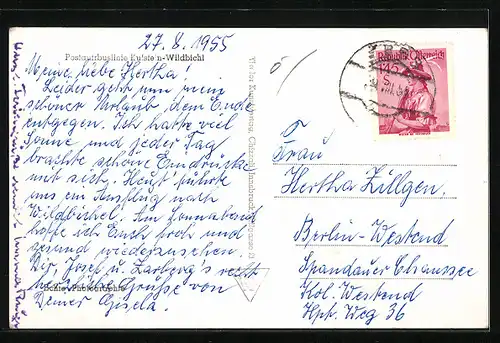 27.8.1955
Postautobuslinie Kufstein-Wildbichl
Meine liebe Hertha!
Leider geht nun mein
schöner Urlaub dem Ende
entgegen. Ich hatte viel
Sonne und jeder Tag
brachte schöne Eindrücke
mit sich. Heut' führte
uns ein Ausflug nach
Wildbichel. Am Sonnabend
hoffe ich Euch froh und
gesund wiederzusehen.
Dir, Josef u. Zarberg's recht
herzliche Grüße von
Deiner Gisela.
Echte Photographie
Republik Österreich
Frau
Hertha Zillgen
Berlin-Westend
Spandauer Chaussee
Kol. Westend
Hpt. Weg 36